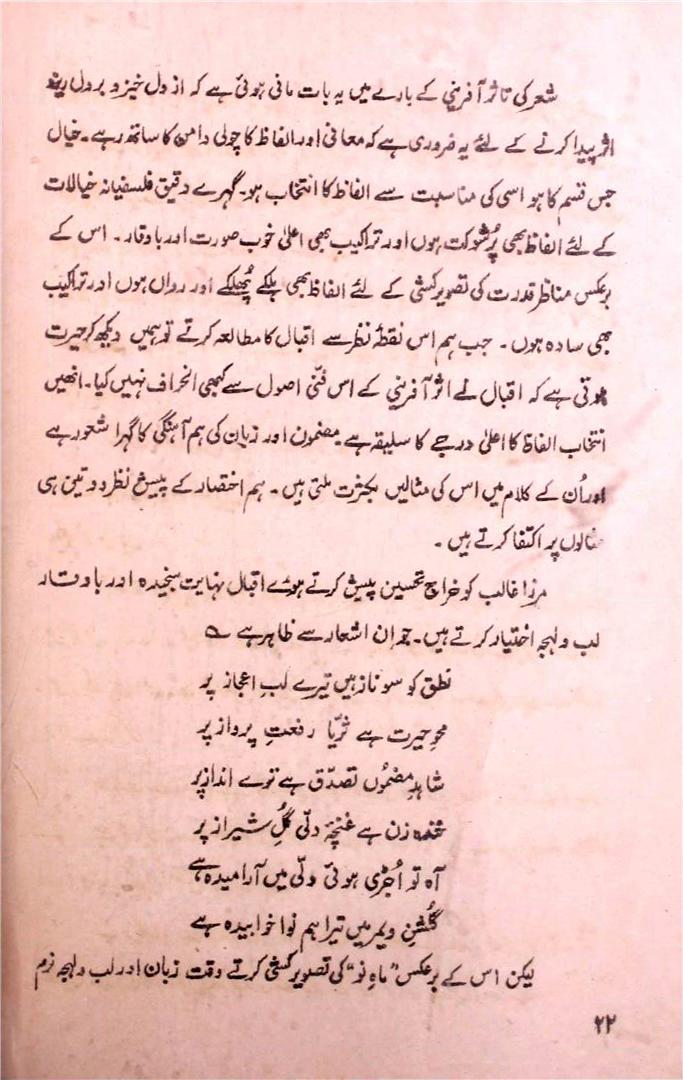 شعر کی تاثر آفرینی کے بارے میں یہ بات مانی ہوئی ہے کہ از دل خیزد بر دل ریزد
اثر پیدا کرنے کے لئے یہ ضروری ہے کہ معانی اور الفاظ کا چولی دامن کا ساتھ رہے۔ خیال
جس قسم کا ہو اسی کی مناسبت سے الفاظ کا انتخاب ہو۔ گہرے دقیق فلسفیانہ خیالات
کے لئے الفاظ بھی پُرشوکت ہوں اور تراکیب بھی اعلیٰ خوب صورت اور باوقار۔ اس کے
برعکس مناظر قدرت کی تصویر کشی کے لئے الفاظ بھی ہلکے پُھلکے اور رواں ہوں اور تراکیب
بھی سادہ ہوں۔ جب ہم اس نقطۂ نظر سے اقبال کا مطالعہ کرتے تو ہمیں دیکھ کر حیرت
ہوتی ہے کہ اقبال نے اثر آفرینی کے اس فنّی اصول سے کبھی انحراف نہیں کیا۔ انھیں
انتخاب الفاظ کا اعلیٰ درجے کا سلیقہ ہے۔ مضمون اور زبان کی ہم آہنگی کا گہرا شعور ہے
اور اُن کے کلام میں اس کی مثالیں بکثرت ملتی ہیں۔ ہم اختصار کے پیش نظر دو تین ہی
مثالوں پر اکتفا کرتے ہیں۔
مرزا غالب کو خراج تحسین پیش کرتے ہوئے اقبال نہایت سنجیدہ اور باوقار
لب و لہجہ اختیار کرتے ہیں۔ جو ان اشعار سے ظاہر ہے ؎
نطق کو سو ناز ہیں تیرے لبِ اعجاز پر
محوِ حیرت ہے ثریّا رفعتِ پرواز پر
شاہدِ مضمُوں تصدّق ہے ترے انداز پر
خندہ زن ہے غنچۂ دلّی گُلِ شیراز پر
آہ تو اُجڑی ہوئی دلّی میں آرامیدہ ہے
گلشنِ ویمر میں تیرا ہم نوا خوابیدہ ہے
لیکن اس کے برعکس ”ماہِ نو“ کی تصویر کشی کرتے وقت زبان اور لب و لہجہ نرم
۲۲